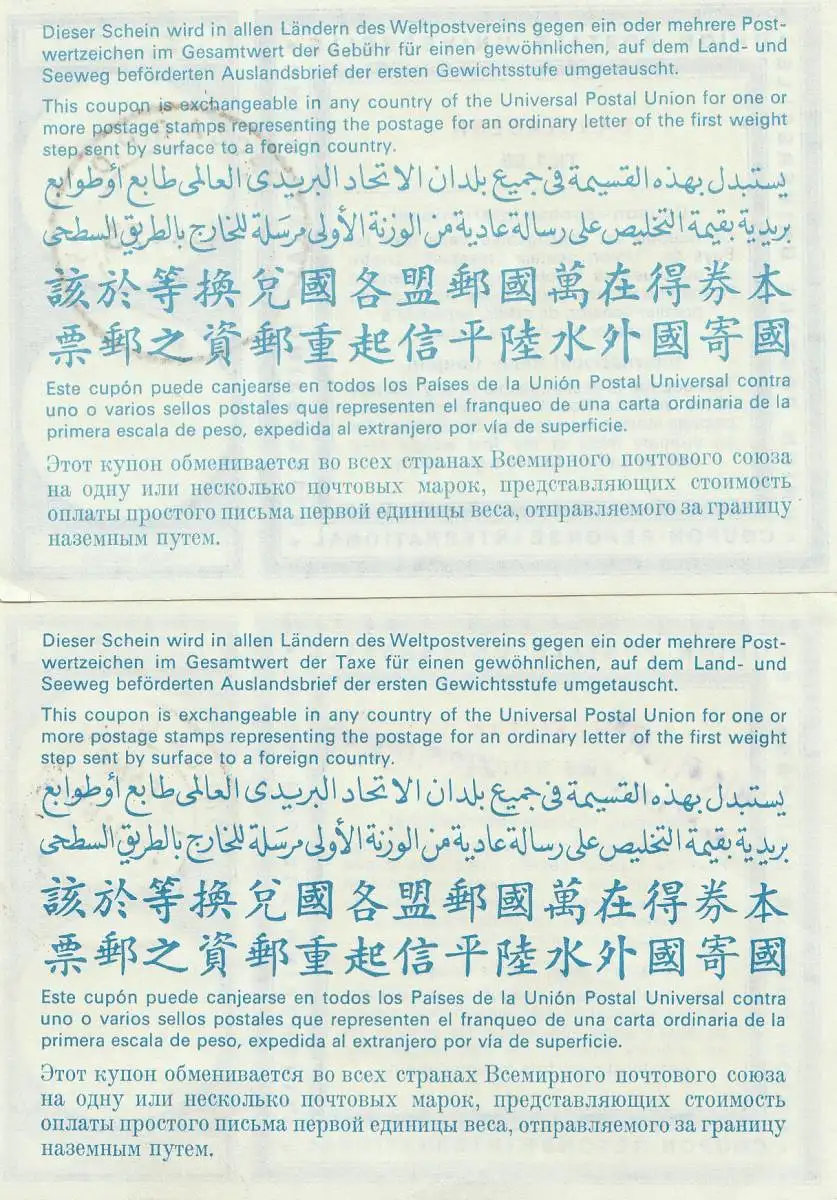 Dieser Schein wird in allen Ländern des Weltpostvereins gegen ein oder mehrere Post-
wertzeichen im Gesamtwert der Gebühr für einen gewöhnlichen, auf dem Land- und
Seeweg beförderten Auslandsbrief der ersten Gewichtsstufe umgetauscht.
This coupon is exchangeable in any country of the Universal Postal Union for one or
more postage stamps representing the postage for an ordinary letter of the first weight
step sent by surface to a foreign country.
يستبدل بهذه القسيمة فى جميع بلدان الاتحاد البريدى العالمى طابع أو طوابع
بريدية بقيمة التخليص على رسالة عادية من الوزنة الأولى مرسَلة للخارج بالطريق السطحى
本券得在萬國郵盟各國兌換等於該
國寄國外水陸平信起重郵資之郵票
Este cupón puede canjearse en todos los Países de la Unión Postal Universal contra
uno o varios sellos postales que representen el franqueo de una carta ordinaria de la
primera escala de peso, expedida al extranjero por vía de superficie.
Этот купон обменивается во всех странах Всемирного почтового союза
на одну или несколько почтовых марок, представляющих стоимость
оплаты простого письма первой единицы веса, отправляемого за границу
наземным путем.
Dieser Schein wird in allen Ländern des Weltpostvereins gegen ein oder mehrere Post-
wertzeichen im Gesamtwert der Taxe für einen gewöhnlichen, auf dem Land- und
Seeweg beförderten Auslandsbrief der ersten Gewichtsstufe umgetauscht.
This coupon is exchangeable in any country of the Universal Postal Union for one or
more postage stamps representing the postage for an ordinary letter of the first weight
step sent by surface to a foreign country.
يستبدل بهذه القسيمة فى جميع بلدان الاتحاد البريدى العالمى طابع أو طوابع
بريدية بقيمة التخليص على رسالة عادية من الوزنة الأولى مرسَلة للخارج بالطريق السطحى
本券得在萬國郵盟各國兌換等於該
國寄國外水陸平信起重郵資之郵票
Este cupón puede canjearse en todos los Países de la Unión Postal Universal contra
uno o varios sellos postales que representen el franqueo de una carta ordinaria de la
primera escala de peso, expedida al extranjero por vía de superficie.
Этот купон обменивается во всех странах Всемирного почтового союза
на одну или несколько почтовых марок, представляющих стоимость
оплаты простого письма первой единицы веса, отправляемого за границу
наземным путем.